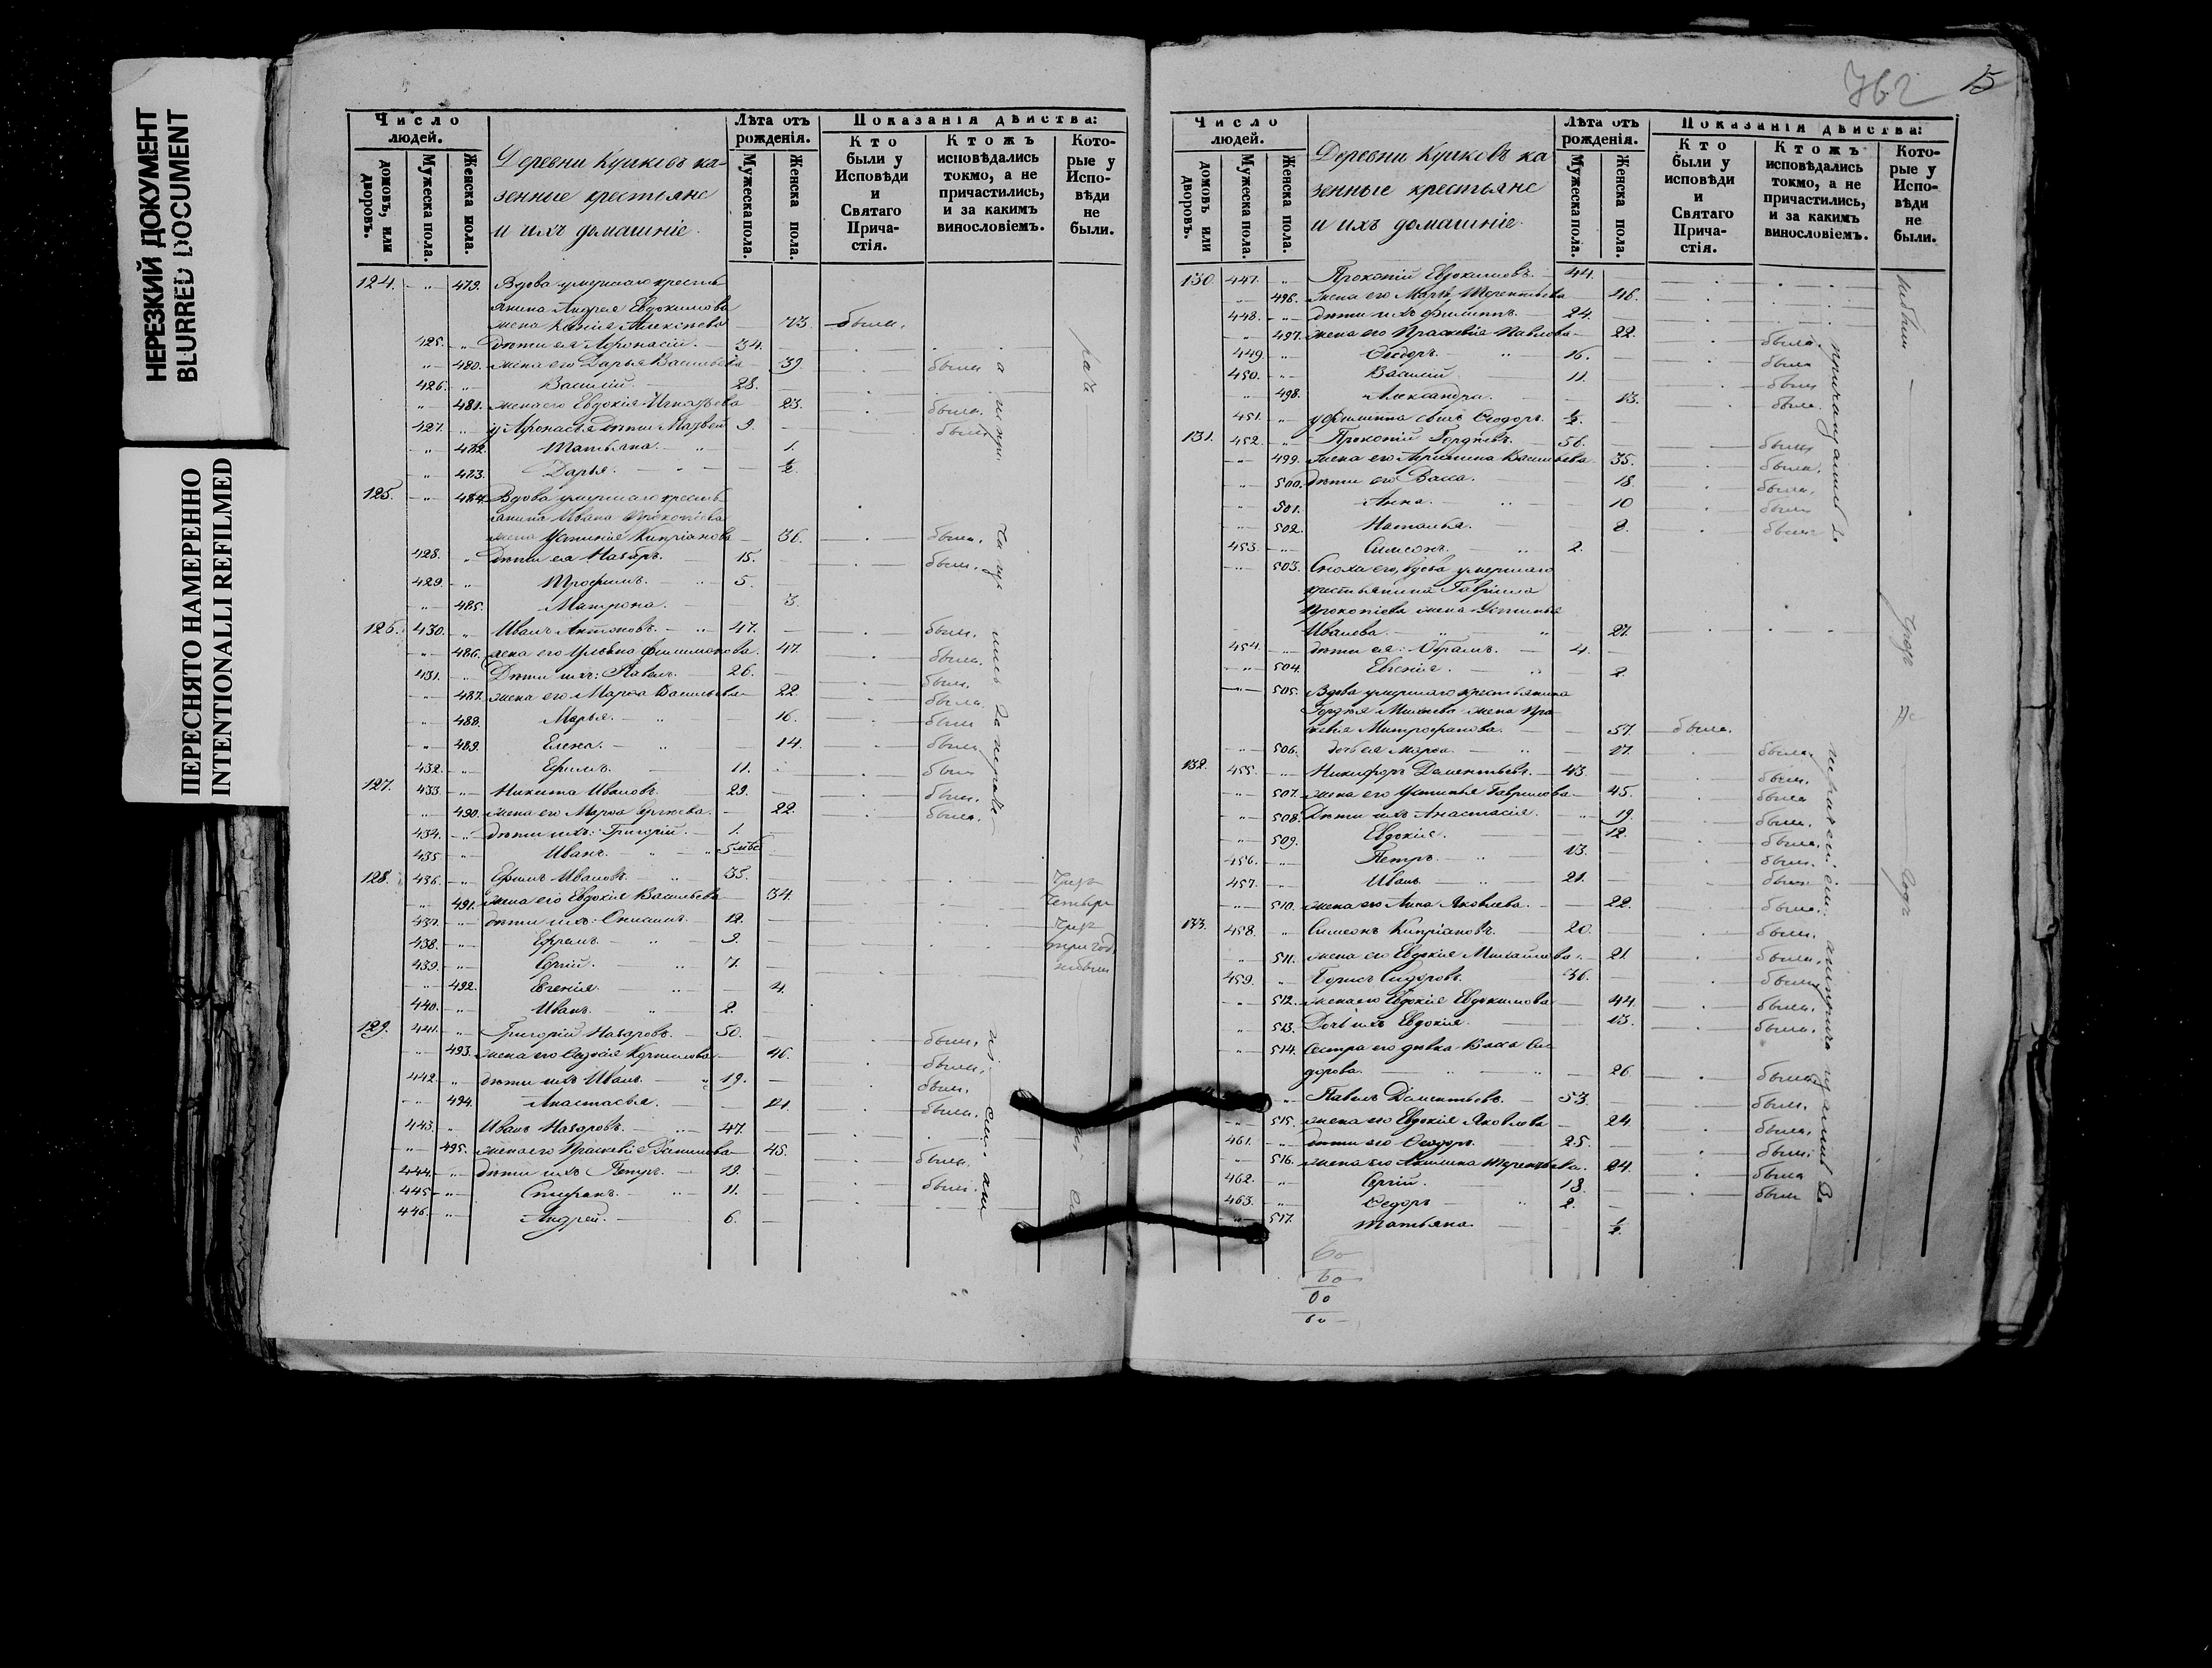 НЕРЕЗКИЙ ДОКУМЕНТ
BLURRED DOCUMENT
ПЕРЕСНЯТО НАМЕРЕННО
INTENTIONALLI REFILMED
Число людей.
домовъ, или дворовъ.
Мужеска пола.
Женска пола.
Деревни Кушковъ ка-
зенные крестьяне
и ихъ домашніе
Лѣта отъ рожденія.
Мужеска пола.
Женска пола.
Показанія дѣйства:
Кто были у Исповѣди и Святаго Прича-стія.
Ктожъ исповѣдались токмо, а не причастились, и за какимъ винословіемъ.
Кото-рые у Испо-вѣди не были.
124. 479. Вдова умершаго кресть
янина Андрея Евдокимова
жена Ксенія Алексѣева 73 была.
425. дѣти ея Афонасій. 34.
480. жена его Дарья Васильева 39. была
426. Василій. 28.
481. жена его Евдокія Игнатьева 23. была.
427. у Афонасья дѣти Матвей 9. былъ
482. Татьяна. 1.
483. Дарья. ½
125. 484. Вдова умершаго кресть
янина Ивана Прокопіева
жена Устинія Кипріанова 36. была.
428. дѣти ея Назаръ. 15. былъ.
429. Трофимъ. 5.
485. Матрона. 3.
126. 430. Иванъ Антоновъ. 47. былъ.
486. жена его Ульяна Филимонова. 47 была.
431. Дѣти ихъ: Павелъ. 26. былъ.
487. жена его Марѳа Васильева 22. была.
488. Марья. 16. была
489. Елена. 14. была
432. Ефимъ. 11. былъ
127. 433. Никита Ивановъ. 29. былъ.
490. жена его Марѳа Сергѣева. 22. была.
434. дѣти ихъ: Григорій. 1.
435 Иванъ.
128. 436. Ефимъ Ивановъ. 35.
491. жена его Евдокія Васильева 34.
437. дѣти ихъ: 12.
438. Ефремъ. 9.
439. Сергій. 7.
492. Евгенія. 4.
440. Иванъ. 2.
129. 441. Григорій Назаровъ. 50. былъ.
493. жена его Корнилова 46. была.
442. дѣти ихъ Иванъ. 19. былъ.
494. Анастасья. 21. была.
443. Иванъ Назаровъ. 47.
495. жена его Праскевія Данилова 45.
444. дѣти ихъ Петръ. 19. былъ.
445 Стефанъ. 11. былъ.
446. Андрей. 6.
762 15
Число людей.
домовъ или дворовъ.
Мужеска пола.
Женска пола.
Деревни Кушковъ ка
зенные крестьяне
и ихъ домашніе
Лѣта отъ рожденія.
Мужеска пола.
Женска пола.
Показанія дѣйства:
Кто были у исповѣди и Святаго Прича-стія.
Ктожъ исповѣдались токмо, а не причастились, и за какимъ винословіемъ.
Кото-рые у Испо-вѣди не были.
130. 447. Прокопій Евдокимовъ. 44.
496. жена его Марѳа Терентьева 46.
448. дѣти ихъ Филиппъ. 24.
497. жена его Праскевія Павлова 22. была.
449. Ѳеодоръ. 16. былъ
450. Василій 11. былъ
498. Александра. 13. была
451. у Филиппа сынъ Ѳеодоръ. ½.
131. 452. Прокопій Гордѣевъ. 56. былъ
499. жена его Васильева. 35. была.
500. дѣти его Васса. 18. была.
501. Анна. 10 была
502. Наталья. 8. была
453. Симеонъ. 2.
503. Сноха его, вдова умершаго
крестьянина Гавріила
Прокопіева жена Устинья
Иванова. 27.
454. дѣти ея: Абрамъ. 4.
504. Евгенія. 2
505. Вдова умершаго крестьянина
Гордѣя Михѣева жена Пра
скевія Митрофанова. 57. была.
506. дочь ея Марѳа. 17. была
132. 455. Никифоръ Дементьевъ. 43. былъ.
507. жена его Устинья Гаврилова 45. была
508. Дѣти ихъ Анастасія. 19. была.
509. Евдокія. 12. была.
456. Петръ. 13. былъ.
457. Иванъ. 21. былъ
510. жена его Анна Яковлева. 22. была.
133. 458. Симеонъ Кипріановъ. 20. былъ.
511. жена его Евдокія Михайлова. 21 была.
459. Борисъ Сидоровъ. 36. былъ
512. жена его Евдокія Евдокимова 44. была.
513. Дочь ихъ Евдокія. 13. была.
514. Сестра его дѣвка Васса Си
дорова. 26. была
Павелъ Дементьевъ. 53. былъ.
515. жена его Евдокія Яковлева 24 была.
461. дѣти его Ѳеодоръ. 25. былъ.
516. жена его Акилина Терентьева. 24. была
462. Сергій. 13. былъ
463. Ѳедоръ 2.
517. Татьяна. ½.
60
60
00
60